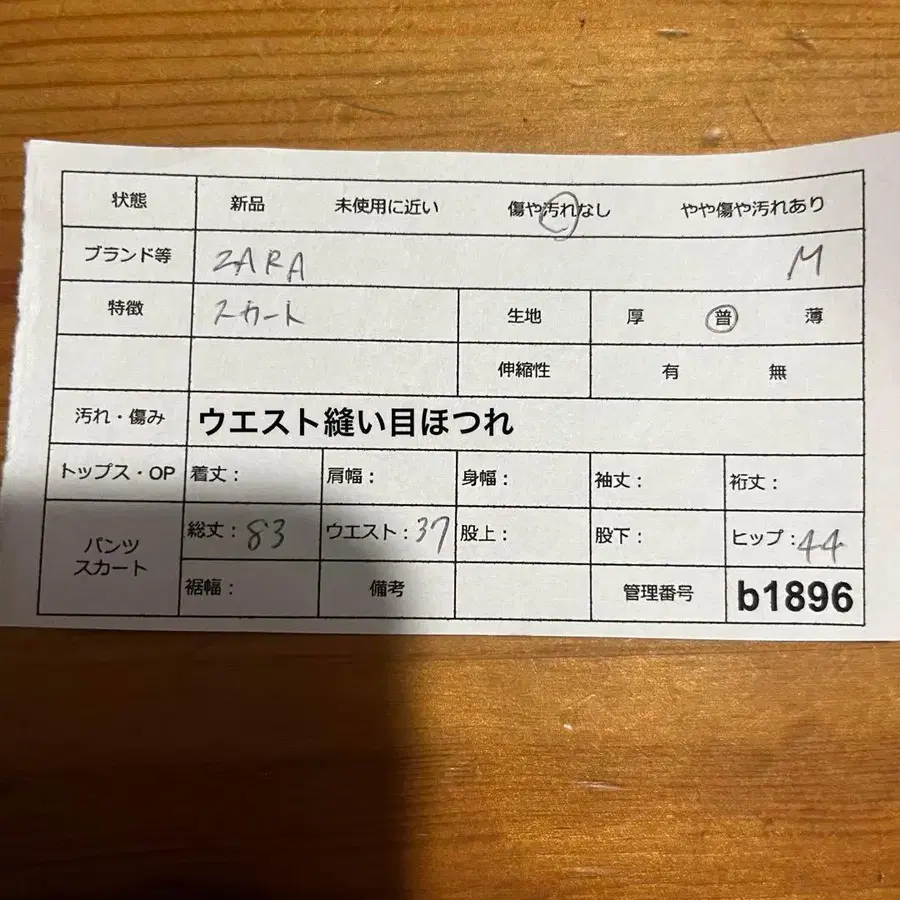 状態 新品 未使用に近い 傷や汚れなし やや傷や汚れあり
ブランド等 ZARA M
特徴 スカート 生地 厚 普 薄
伸縮性 有 無
汚れ・傷み ウエスト縫い目ほつれ
トップス・OP 着丈: 肩幅: 身幅: 袖丈: 裄丈:
パンツ スカート 総丈:83 ウエスト:37 股上: 股下: ヒップ:44
裾幅: 備考 管理番号 b1896